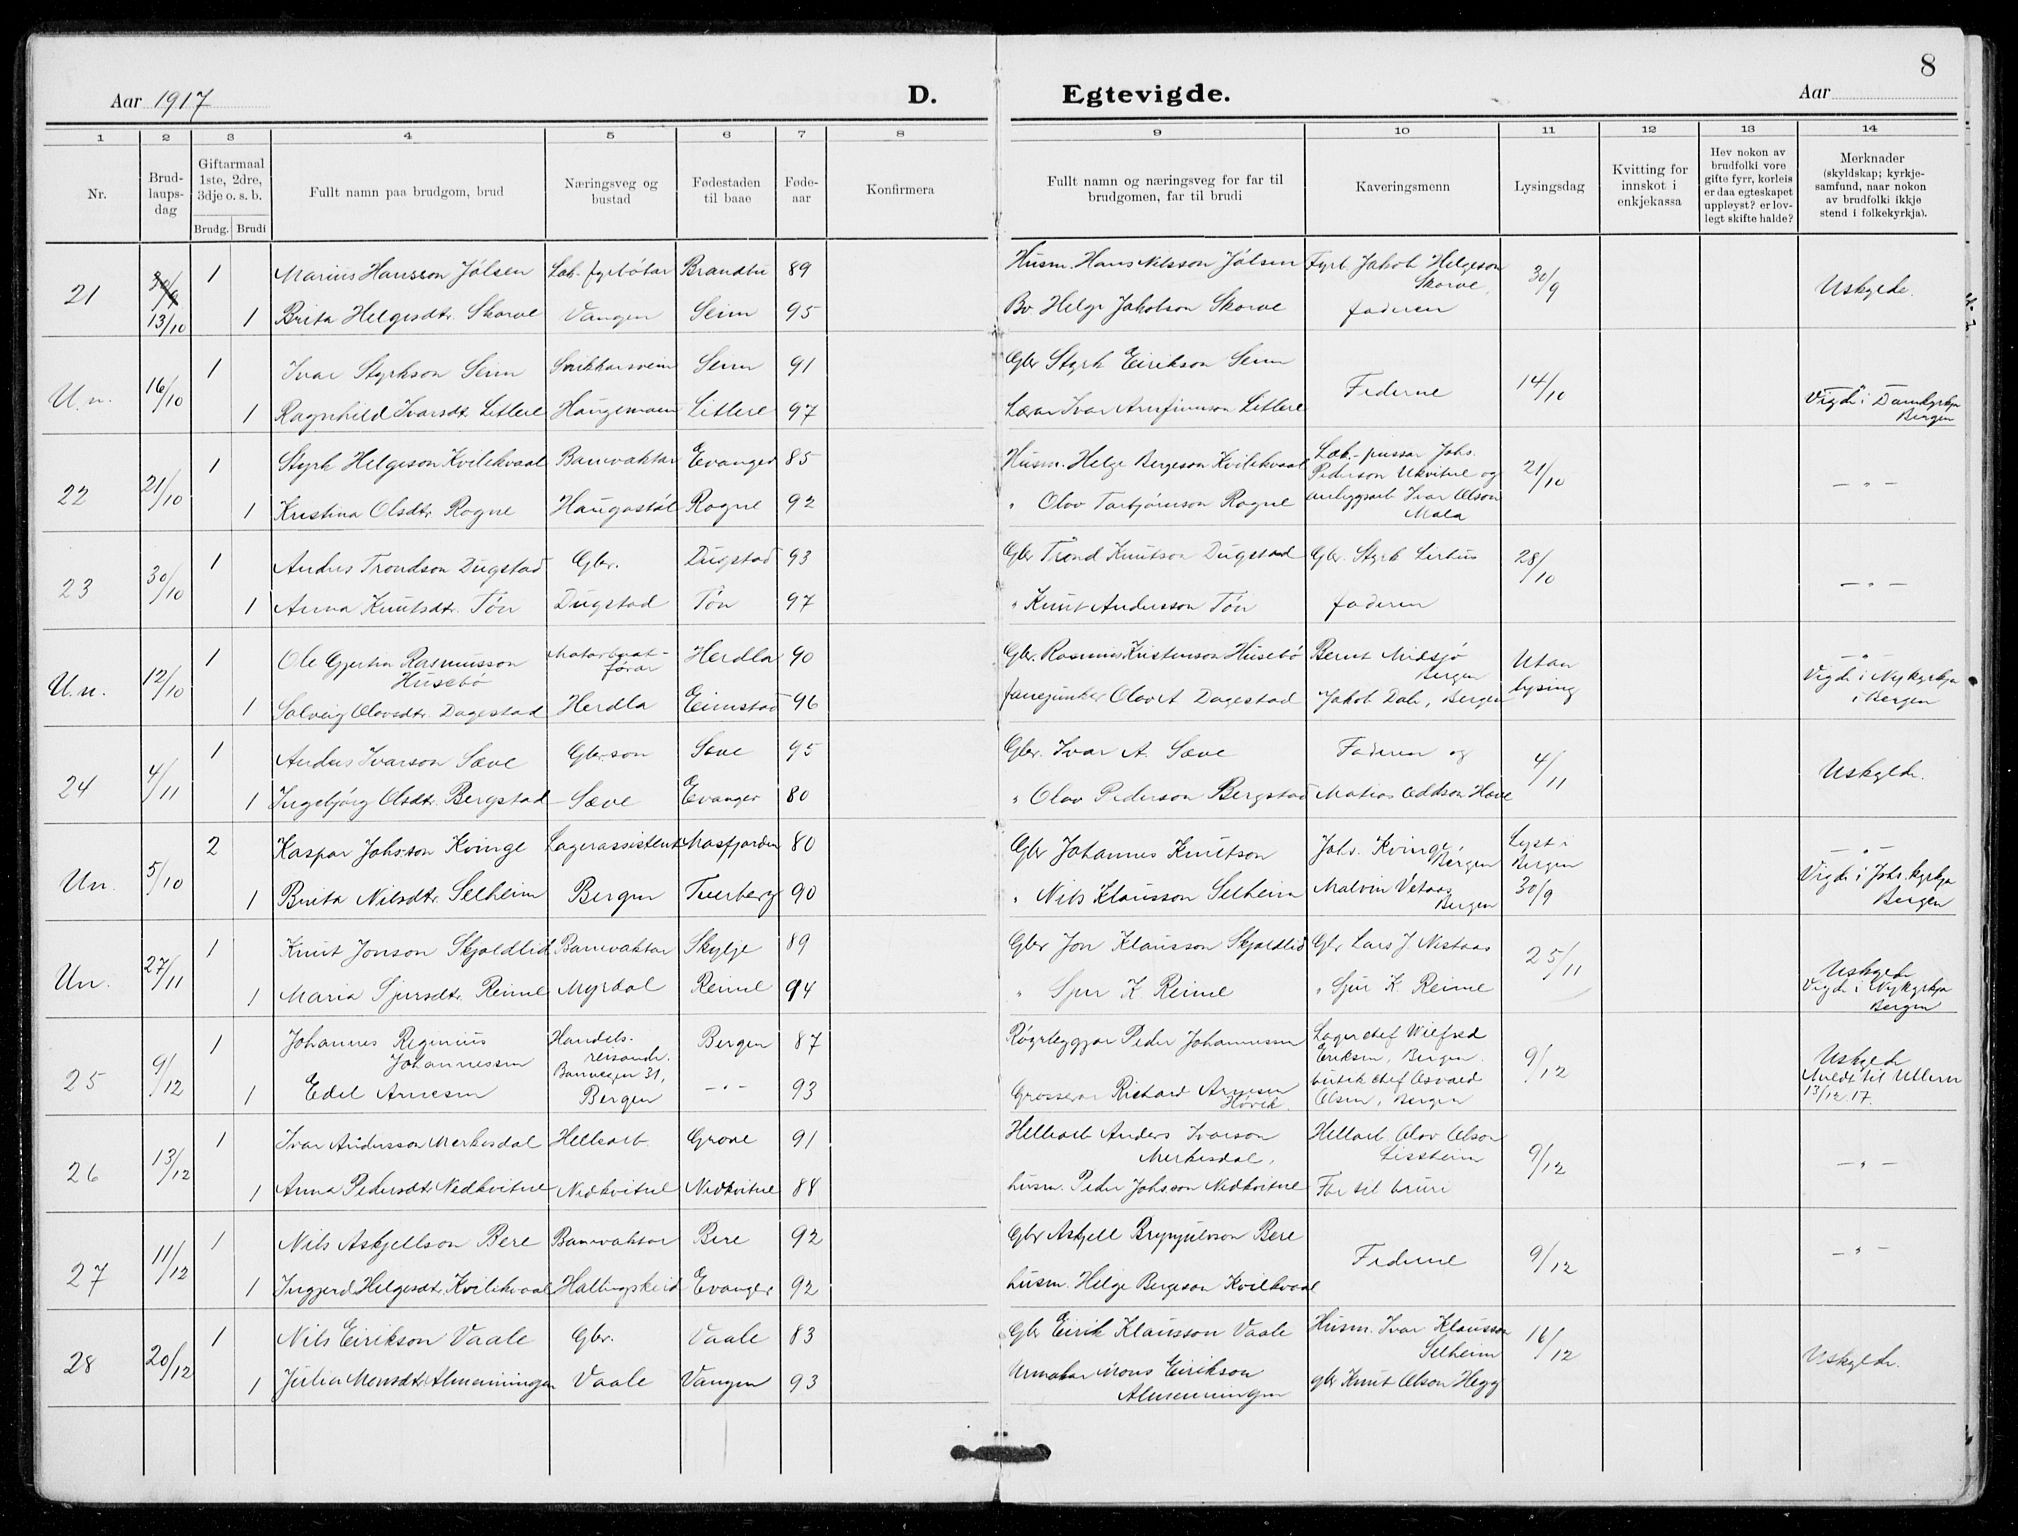 8
Aar 1917 D. Egtevigde. Aar
1 2 3 4 5 6 7 8 9 10 11 12 13 14
Nr. Brud-laups-dag Giftarmaal 1ste, 2dre, 3dje o. s. b. Brudg. Brudi Fullt namn paa brudgom, brud Næringsveg og bustad Fødestaden til baae Føde-aar Konfirmera Fullt namn og næringsveg for far til brudgomen, far til brudi Kaveringsmenn Lysingsdag Kvitting for innskot i enkjekassa Hev nokon av brudfolki vore gifte fyrr, korleis er daa egteskapet uppløyst? er lov-legt skifte halde? Merknader (skyldskap; kyrkje-samfund, naar nokon av brudfolki ikkje stend i folkekyrkja).
21 30/9 1 Marius Hansson Jølsen Lok. fyrbøtar Brandbu 89 Husm. Hans Nilsson Jølsen Fyrb. Jakob Helgeson Skorve, 30/9 Uskylde.
13/10 1 Brita Helgesdtr. Skorve Vangen Seim 95 Br Helge Jakobson Skorve faderen
U.n. 16/10 1 Ivar Styrkson Seim Seim 91 Gbr Styrk Eirikson Seim Federne 14/10 Vigde i Domkyrkja Bergen
1 Ragnhild Ivarsdt. Litlere Haugemoen Litlere 97 Lærar Ivar Arnfinnson Litlere
22 21/10 1 Styrk Helgeson Kvilekvaal Banevaktar Evanger 85 Husm. Helge Bergeson Kvilekvaal Lok.-pussar Johs. Pederson Ukvitne og anleggsarb Ivar Olson Mala 21/10 — " —
1 Kristina Olsdtr. Rogne Haugastøl Rogne 92 " Olov Torbjørnson Rogne
23 30/10 1 Anders Trondson Dugstad Gbr. Dugstad 93 Gbr Trond Knutson Dugstad Gbr. Styrk Lirhus 28/10 — " —
1 Anna Knutsdt. Tøn Dugstad Tøn 97 " Knut Andersson Tøn faderen
U.n. 12/10 1 Ole Gjertin Rasmusson Husebø Motorbaat-førar Herdla 90 Gbr. Rasmus Kristenson Husebø Bernt Midsjø Bergen Utan lysing — " — Vigde i Nykyrkja i Bergen
1 Solveig Olavsdtr. Dagestad Herdla Eimstad 96 fanejunker Olav A Dagestad Jakob Dale, Bergen
24 4/11 1 Anders Ivarson Sæve Gbr.son Sæve 95 Gbr. Ivar A. Sæve Faderen og 4/11 Uskylde.
1 Ingebjørg Olsdtr. Bergstad Sæve Evanger 80 " Olav Pederson Bergstad Matias Oddson Hove
Un. 5/10 2 Kaspar Johsson Kvinge Lagerassistent Masfjorden 80 Gbr Johannes Knutson Johs. Kvinge, Bergen Lyst i Bergen 30/9 — " — Vigde i Johs. kyrkja Bergen
1 Brita Nilsdtr. Selheim Bergen Tverberg 90 " Nils Klausson Selheim Malvin Vetaas Bergen
Un. 27/11 1 Knut Jonson Skjoldlid Banevaktar Skylje 89 Gbr Jon Klausson Skjoldlid Gbr Lars J. Nestaas 25/11 Uskylde Vigde i Nykyrkja Bergen
1 Maria Sjursdt. Reime Myrdal Reime 94 " Sjur K Reime " Sjur K Reime
25 9/12 1 Johannes Reginius Johannessen Handels-reisande. Bergen 87 Røyrleggjar Peder Johannessen Lagerchef Wilfred Eriksen, Bergen. 9/12 Uskylde Meldt til Ullern 13/12 17.
1 Edel Arnesen Bergen — " — 93 Grosserar Richard Arnesen Høvik. butikchef Osvald Olsen, Bergen
26 13/12 1 Ivar Andersson Merkesdal Hellearb. Grove 91 Hellearb Anders Ivarson Merkesdal, Hellarb. Olov Olson Lissheim 9/12 — " —
1 Anna Pedersdt. Nedkvitne Nedkvitne Nedkvitne 88 husm. Peder Johsson Nedkvitne Far til bruri
27 11/12 1 Nils Askjellson Bere Banevaktar Bere 92 Gbr Askjell Brynjulvson Bere Federne 9/12 — " —
1 Ingjerd Helgesdtr. Kvilekvaal Hallingskeid Evanger 92 husm. Helge Bergeson Kvilekvaal
28 20/12 1 Nils Eirikson Vaale Gbr. Vaale 83 Gbr Eirik Klausson Vaale Husm. Ivar Klausson Selheim 16/12 Uskylde.
1 Julia Monsdt. Almenningen Vaale Vangen 93 Urmakar Mons Eirikson Almenningen gbr Knut Olson Hegg